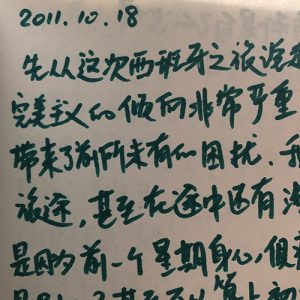 2011.10.18
先从这次西班牙之旅说
完美主义的倾向非常严重
带来了前所未有的困扰.我
旅途,甚至在途中还有
是因为前一个星期身心俱疲